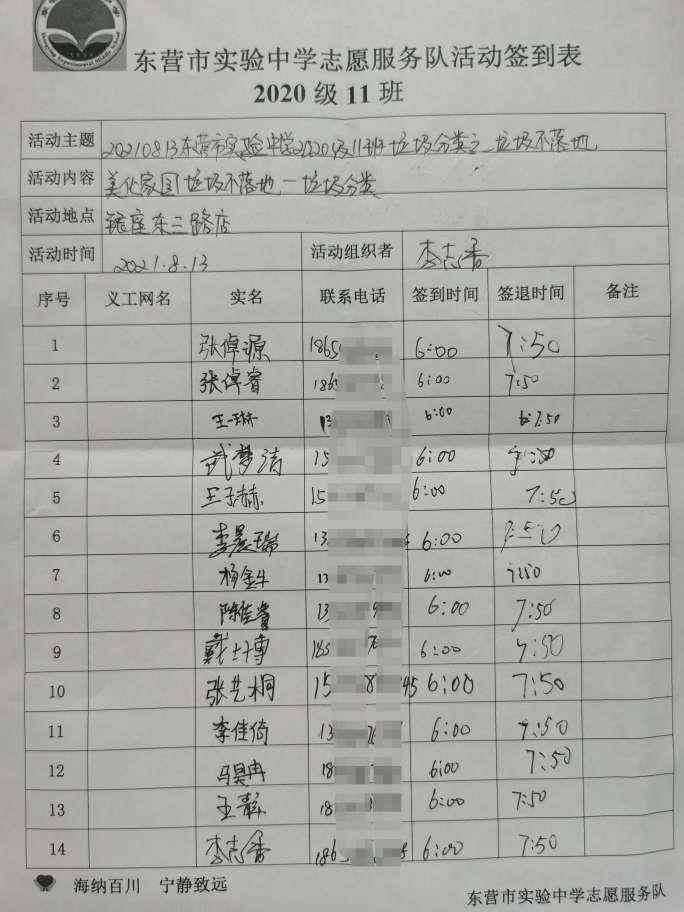 Dongying Experimental Middle School
东营市实验中学志愿服务队活动签到表
2020 级 11 班
活动主题 20210813东营市实验中学2020级11班垃圾分类之垃圾不落地
活动内容 美化家园垃圾不落地—垃圾分类
活动地点 银座东三路店
活动时间 2021.8.13 活动组织者 李志香
序号 义工网名 实名 联系电话 签到时间 签退时间 备注
1 张倬源 1865 6:00 7:50
2 张倬睿 186 6:00 7:50
3 王一琳 13 6:00 7:50
4 武梦洁 15 6:00 7:50
5 王子赫 15 6:00 7:50
6 李晨瑞 13 6:00 7:50
7 杨金牛 13 6:00 7:50
8 陈佳 13 6:00 7:50
9 戴士博 185 6:00 7:50
10 张艺桐 15 8 45 6:00 7:50
11 李佳倚 13 6:00 7:50
12 马昊冉 18 6:00 7:50
13 王静 18 6:00 7:50
14 李志香 186 6:00 7:50
海纳百川 宁静致远
东营市实验中学志愿服务队